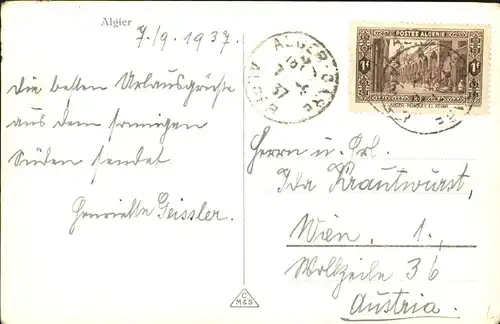 Algier
7./9. 1937.
die besten Urlaubsgrüsse
aus dem sonnigen
Süden sendet
Henriette Geissler.
C
M&S
ALGER GARE
ALGER
POSTES ALGERIE
1F
1F
Herrn u. Frl.
Ida Krautwurst,
Wien. 1.,
Wollzeile 36
Austria.